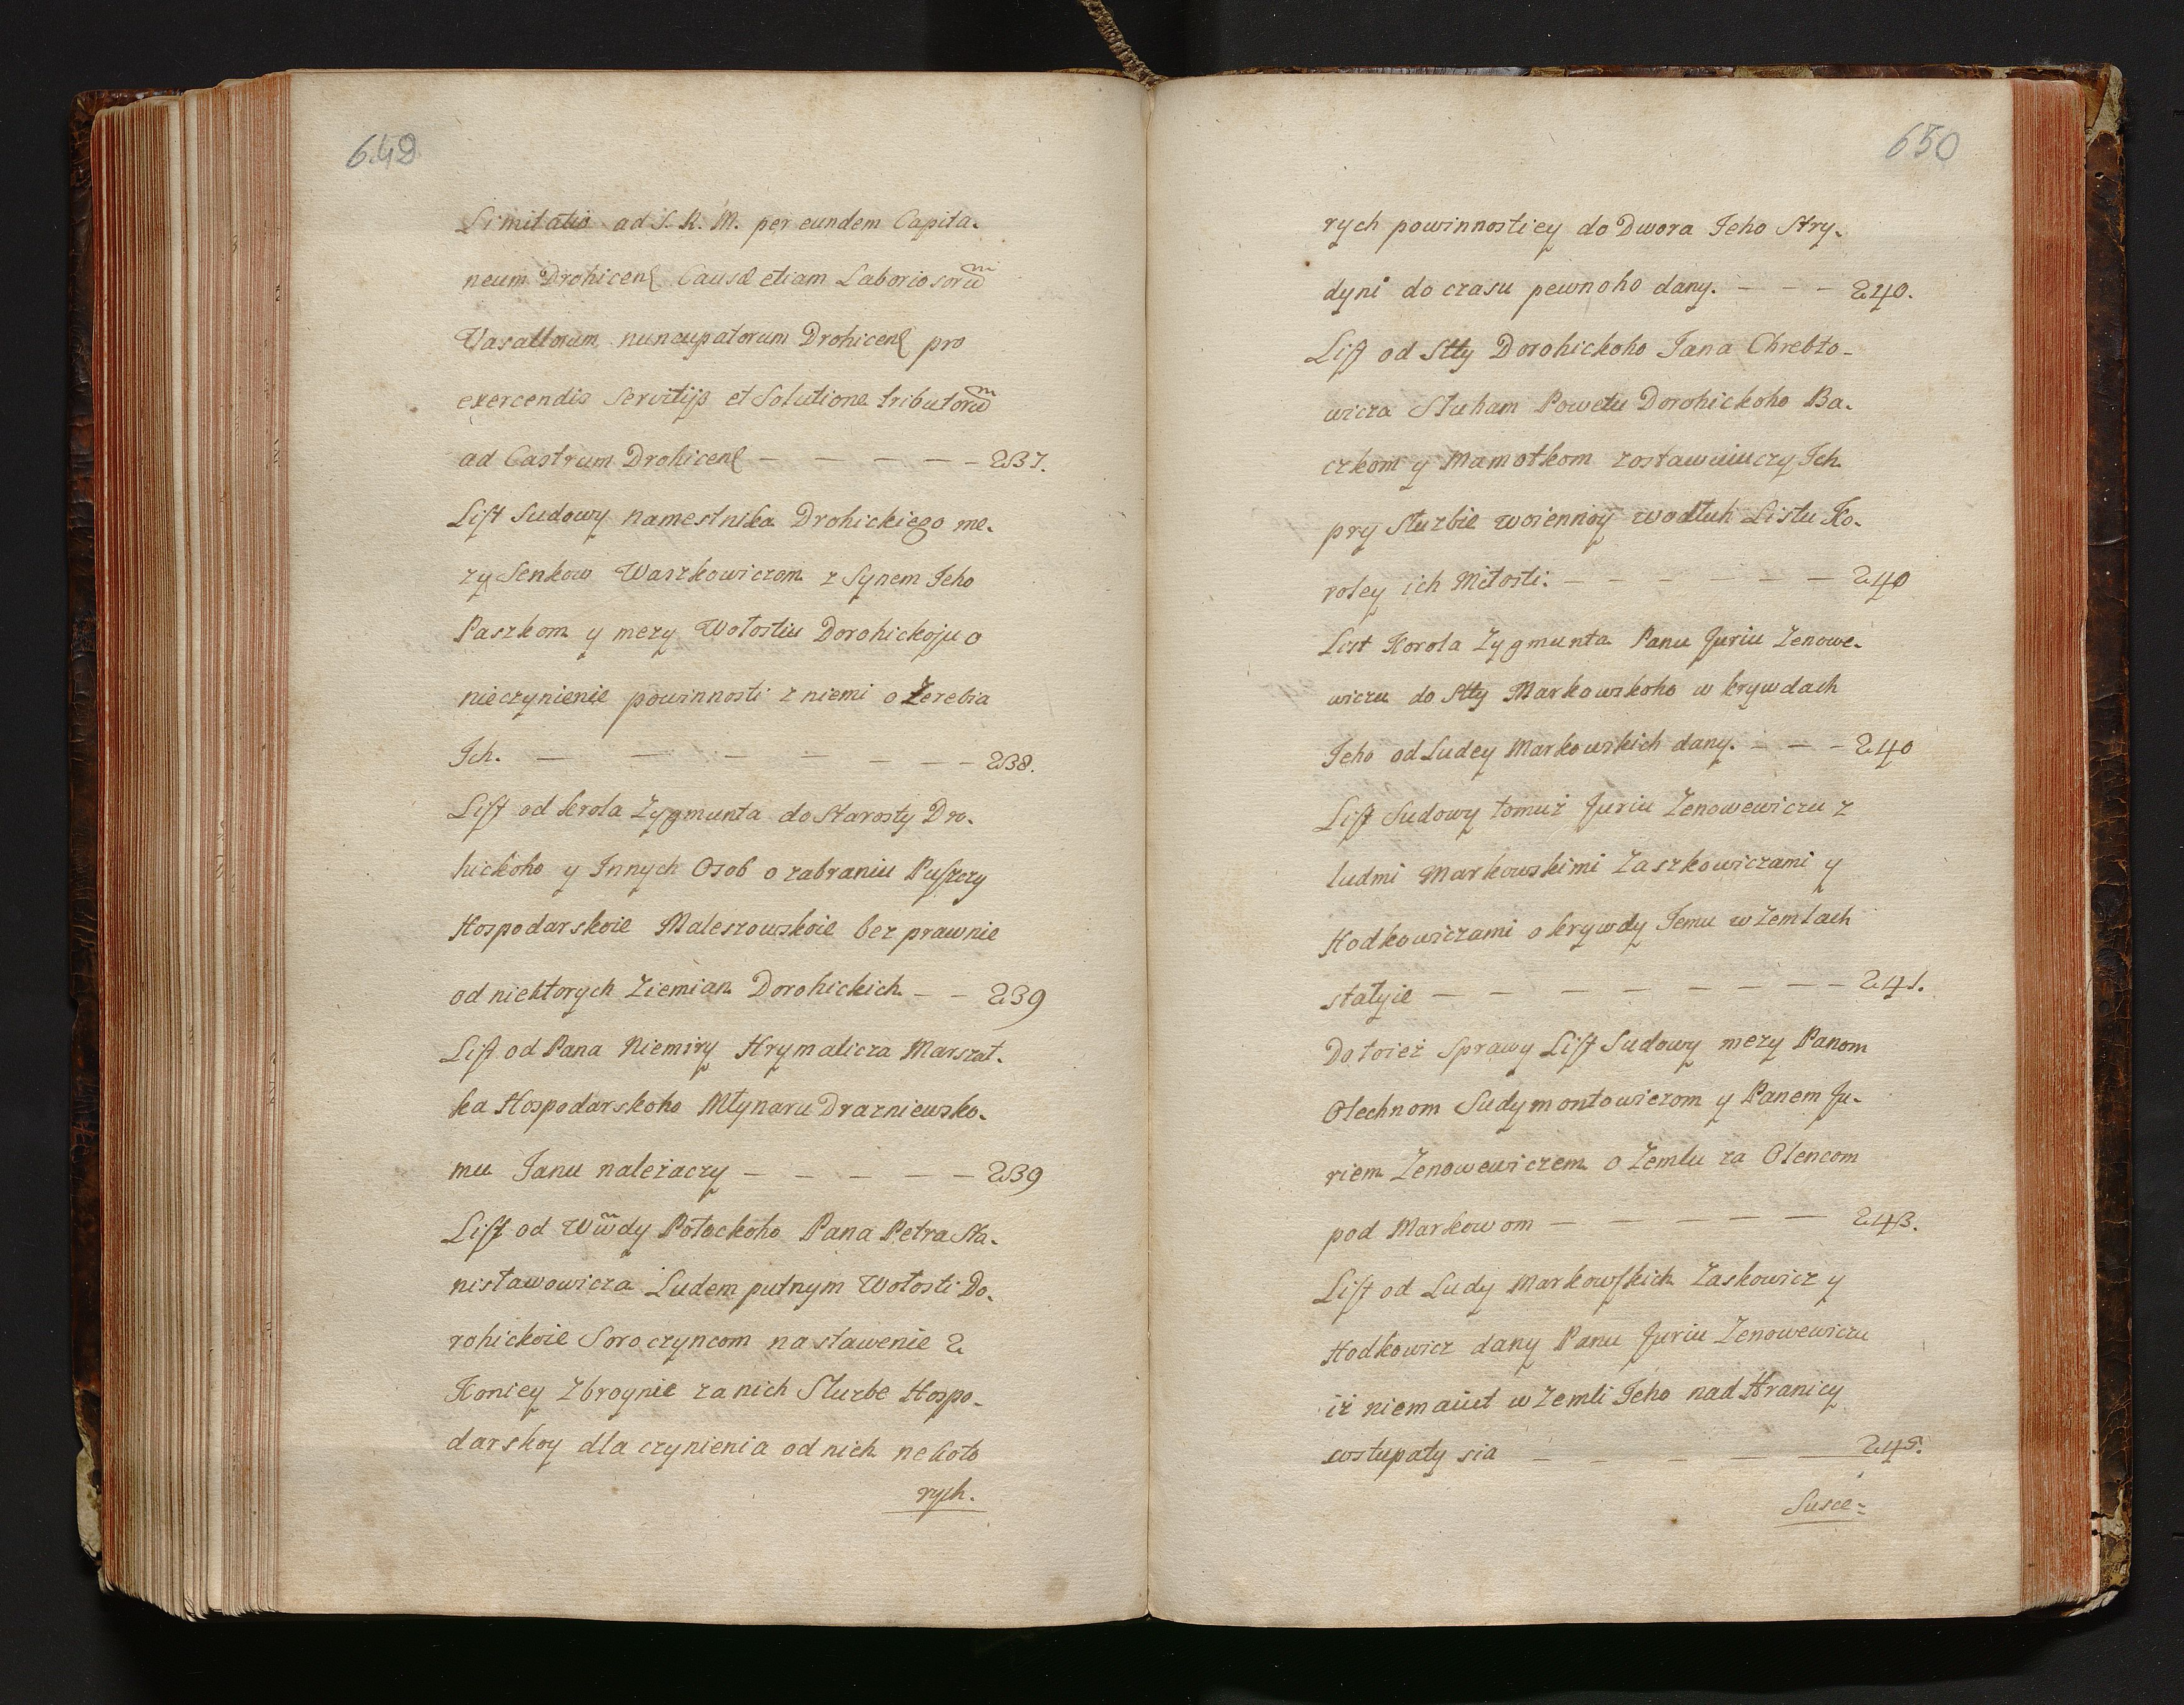 649
Limitatio ad S. R. M. per eundem Capita-
neum Drohicens Causæ etiam Laboriosorum̃
Vasallorum nuncupatorum Drohicens pro
exercendis Servitijs et Solutione tributorum̃
ad Castrum Drohicens — — — — — 237.
List Sudowy namestnika Drohickiego me-
zy Senkow Waszkowiczom z Synem Jeho
Paszkom y mezy Wołostiu Dorohickoju o
nieczynienie powinnosti z niemi o Zerebia
Ich. — — — — — — — 238.
List od krola Zygmunta do Starosty Dro-
hickoho y Innych Osob o zabraniu Puszczy
Hospodarskoie Maleszowskoie bez prawnie
od niektorych Ziemian Dorohickich — — 239
List od Pana Niemiry Hrymalicza Marszał-
ka Hospodarskoho Młynaru Drazniewsko-
mu Janu należaczy — — — — — 239
List od Ww̃dy Połockoho Pana Petra Sta-
nisławowicza Ludem putnym Wołosti Do-
rohickoie Soroczyncom na stawenie 2
Koniey Zbroynie za nich Słuzbe Hospo-
darskoy dla czynienia od nich nekoto
rych.
650
rych powinnostiey do Dwora Jeho Stry-
dyni do czasu pewnoho dany. — — — 240.
List od Stty Dorohickoho Jana Chrebto-
wicza Słuham Powetu Dorohickoho Ba-
czkom y Mamotkom zostawuiuczy Ich
pry Słuzbie woiennoy wodłuh Listu Ko-
roley ich Miłosti. — — — — — — 240
List Korola Zygmunta Panu Juriu Zenowe-
wiczu do Stty Markowskoho w krywdach
Jeho od Ludey Markowskich dany. — — — 240
List Sudowy tomuż Juriu Zenowewiczu z
ludmi Markowskimi Zaszkowiczami y
Hodkowiczami o krywdy Jemu w Zemlach
stałyie — — — — — — — — 241.
Do toież Sprawy List Sudowy mezy Panom
Olechnom Sudymontowiczom y Panem Ju-
riem Zenowewiczem o Zemlu za Olencom
pod Markowom — — — — — — 243.
List od Ludy Markowskich Zaskowicz y
Hodkowicz dany Panu Juriu Zenowewiczu
iż niemaiut w Zemli Jeho nad Hranicy
wstupaty sia — — — — — — 245.
Susce-